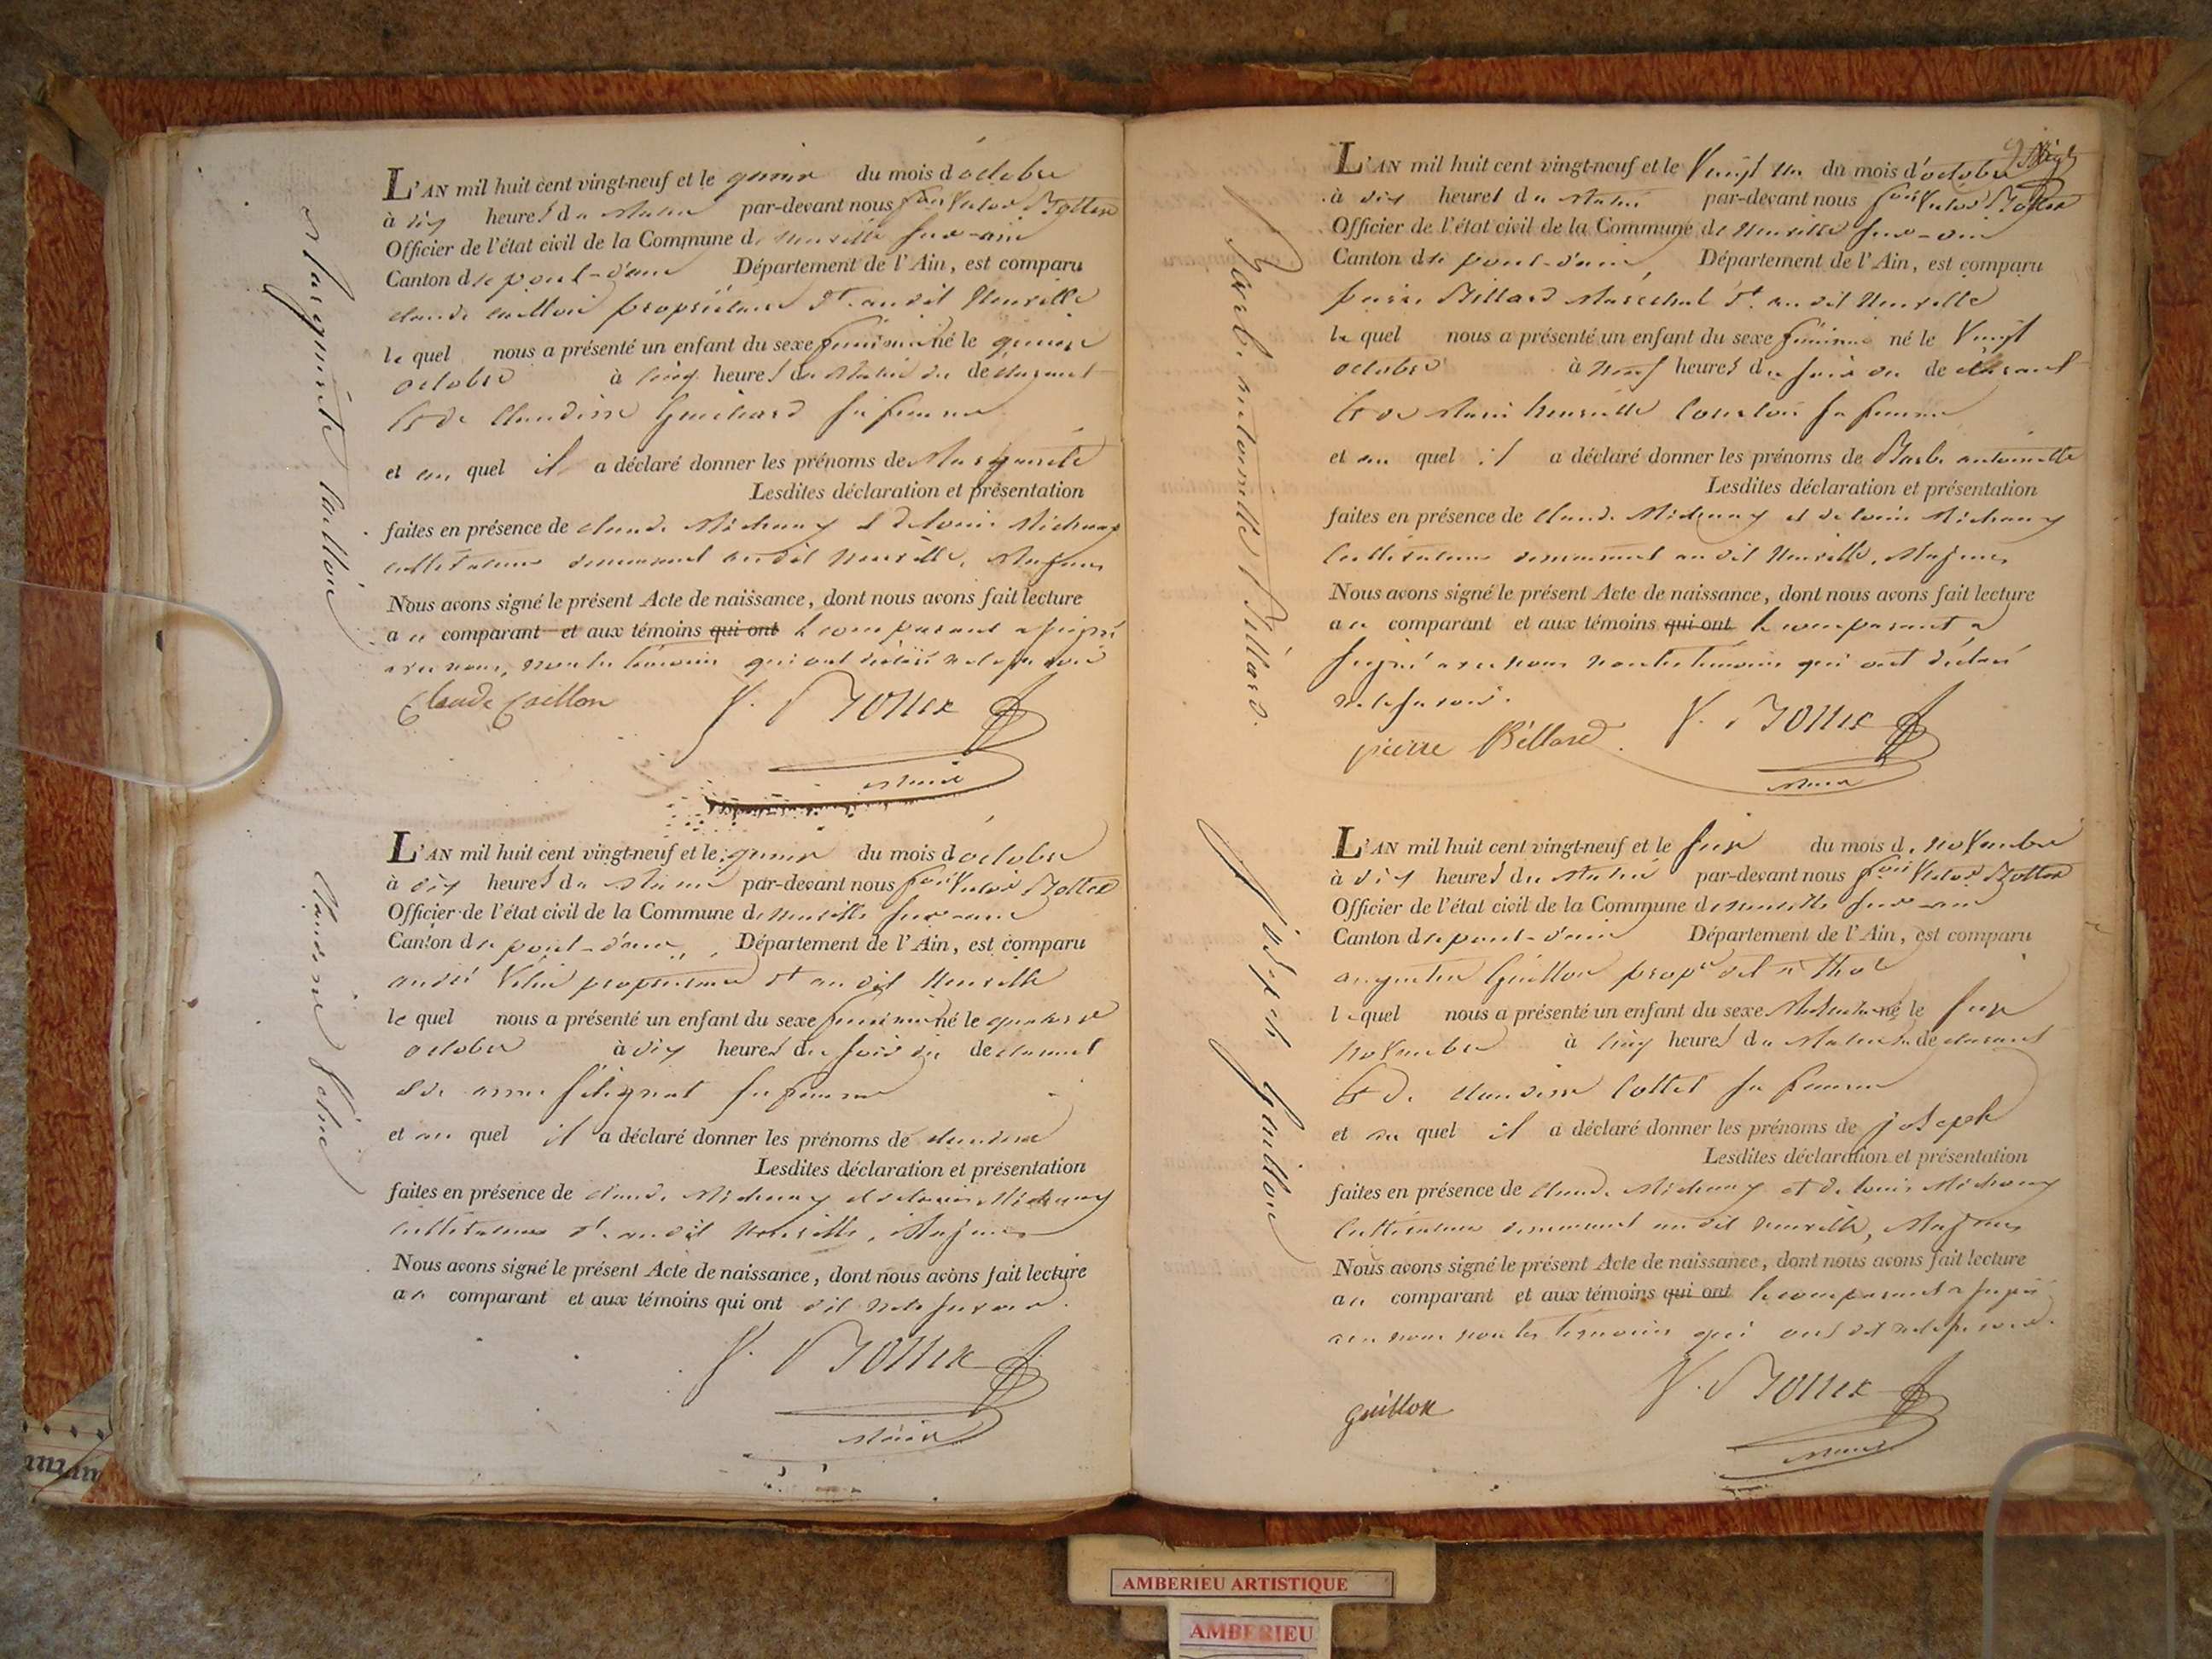 Marguerite Caillon
L'AN mil huit cent vingt-neuf et le quinze du mois d'octobre
à dix heures du matin par-devant nous fois Victor Bottex
Officier de l'état civil de la Commune de neuville sur-ain
Canton de pont-d'ain Département de l'Ain, est comparu
claude Caillon propriétaire dt. audit Neuville
lequel nous a présenté un enfant du sexe féminin né le quinze
octobre à cinq heures du matin du declarant
et de Claudine Guichard sa femme
et au quel il a déclaré donner les prénoms de Marguerite
Lesdites déclaration et présentation
faites en présence de claude Michuny et de louis Michuny
cultivateurs demeurant audit neuville, Majeurs
Nous avons signé le présent Acte de naissance, dont nous avons fait lecture
au comparant et aux témoins qui ont le comparant a signé
avec nous, non les témoins qui ont déclaré ne le savoir
Claude Caillon V. Bottex
Maire
Claudine
L'AN mil huit cent vingt-neuf et le quinze du mois d'octobre
à dix heures du matin par-devant nous fois Victor Bottex
Officier de l'état civil de la Commune de neuville sur-ain
Canton de pont-d'ain Département de l'Ain, est comparu
andré propriétaire dt audit Neuville
le quel nous a présenté un enfant du sexe féminin né le quatorze
octobre à dix heures du soir du declarant
et de anne sa femme
et au quel il a déclaré donner les prénoms de claudine
Lesdites déclaration et présentation
faites en présence de claude Michuny et de louis Michuny
cultivateurs dt. audit Neuville, Majeurs
Nous avons signé le présent Acte de naissance, dont nous avons fait lecture
au comparant et aux témoins qui ont dit ne le savoir.
V. Bottex
Maire
Barbe antoinette Billard.
L'AN mil huit cent vingt-neuf et le Vingt un du mois d'octobre
à dix heures du matin par-devant nous fois Victor Bottex
Officier de l'état civil de la Commune de Neuville sur-ain
Canton de pont-d'ain, Département de l'Ain, est comparu
pierre Billard Maréchal dt. audit Neuville
le quel nous a présenté un enfant du sexe féminin né le Vingt
octobre à neuf heures du soir du declarant
et de Marie henriette sa femme
et au quel il a déclaré donner les prénoms de Barbe antoinette
Lesdites déclaration et présentation
faites en présence de claude Michuny et de louis Michuny
Cultivateurs demeurant audit Neuville, Majeurs
Nous avons signé le présent Acte de naissance, dont nous avons fait lecture
au comparant et aux témoins qui ont le comparant a
signé avec nous non les témoins qui ont déclaré
ne le savoir.
pierre Billard V. Bottex
Maire
Joseph Guillon
L'AN mil huit cent vingt-neuf et le six du mois de novembre
à dix heures du matin par-devant nous fois Victor Bottex
Officier de l'état civil de la Commune de neuville sur-ain
Canton de pont-d'ain Département de l'Ain, est comparu
augustin Guillon propre
lequel nous a présenté un enfant du sexe Masculin né le six
novembre à cinq heures du Matin du declarant
et de claudine Cottet sa femme
et au quel il a déclaré donner les prénoms de joseph
Lesdites déclaration et présentation
faites en présence de claude Michuny et de louis Michuny
Cultivateurs demeurant audit neuville, Majeurs
Nous avons signé le présent Acte de naissance, dont nous avons fait lecture
au comparant et aux témoins qui ont le comparant a signé
avec nous non les témoins qui ont dit ne le savoir.
guillon V. Bottex
Maire
AMBERIEU ARTISTIQUE
AMBERIEU